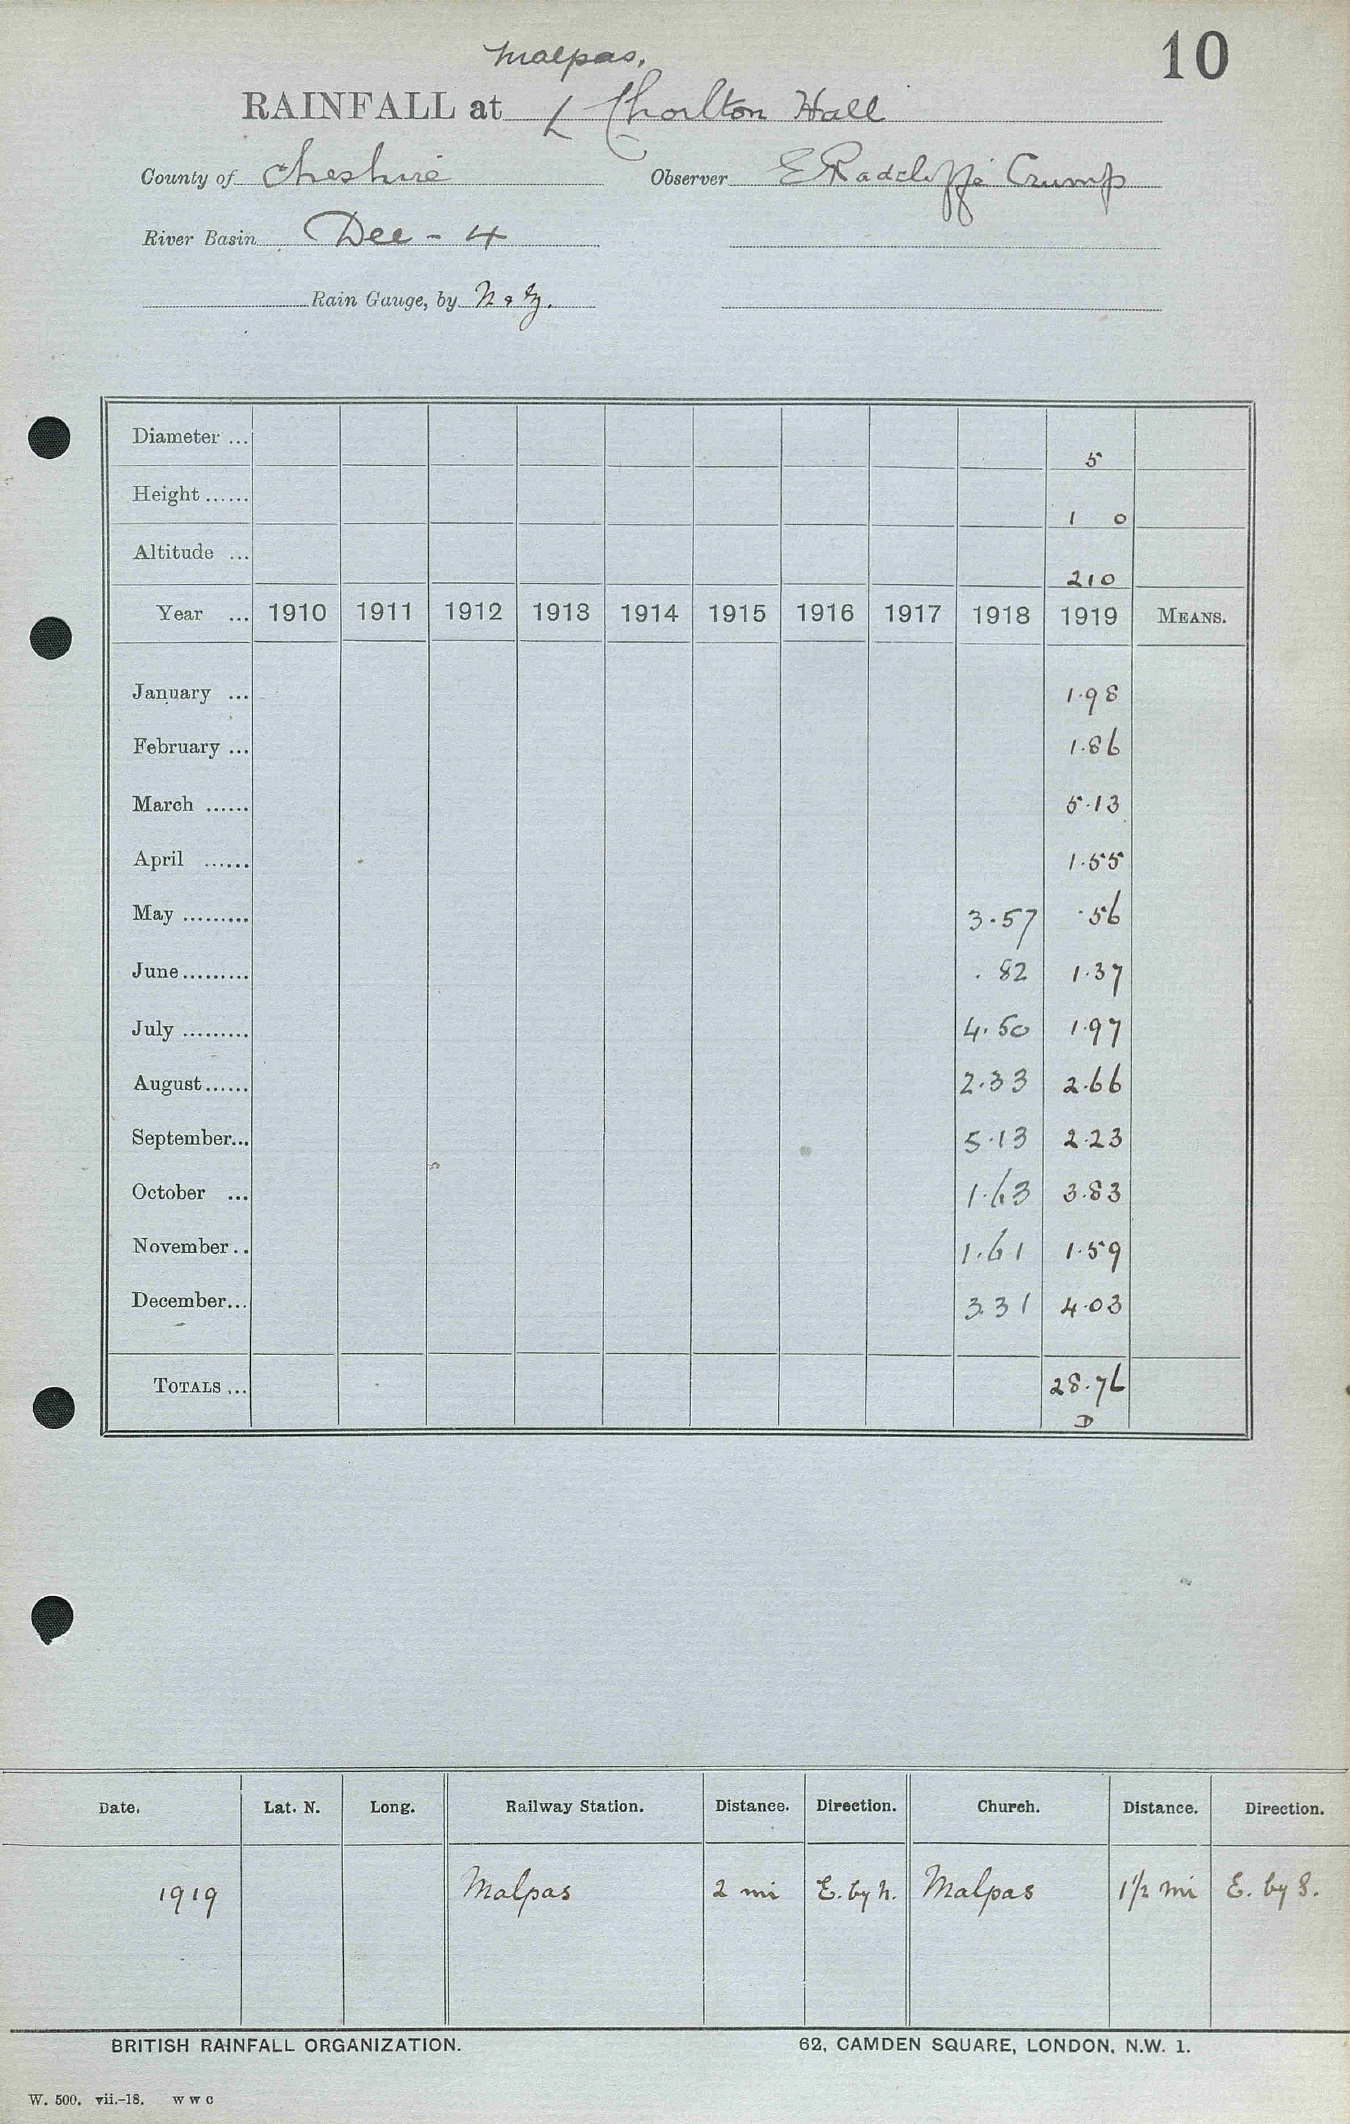 10
Malpas,
RAINFALL at Chorlton Hall
County of Cheshire Observer E Radcliffe Crump
River Basin Dee - 4
Rain Gauge, by N & Z.
Diameter ... 5
Height ...... 1 0
Altitude ... 210
Year ... 1910 1911 1912 1913 1914 1915 1916 1917 1918 1919 MEANS.
January ... 1.98
February ... 1.86
March ...... 5.13
April ...... 1.55
May ......... 3.57 .56
June......... .82 1.37
July ......... 4.50 1.97
August...... 2.33 2.66
September... 5.13 2.23
October ... 1.63 3.83
November.. 1.61 1.59
December... 3.31 4.03
TOTALS ... 28.76
D
Date. Lat. N. Long. Railway Station. Distance. Direction. Church. Distance. Direction.
1919 Malpas 2 mi E. by N. Malpas 1½ mi E. by S.
BRITISH RAINFALL ORGANIZATION. 62, CAMDEN SQUARE, LONDON, N.W. 1.
W. 500. vii.-18. W W C